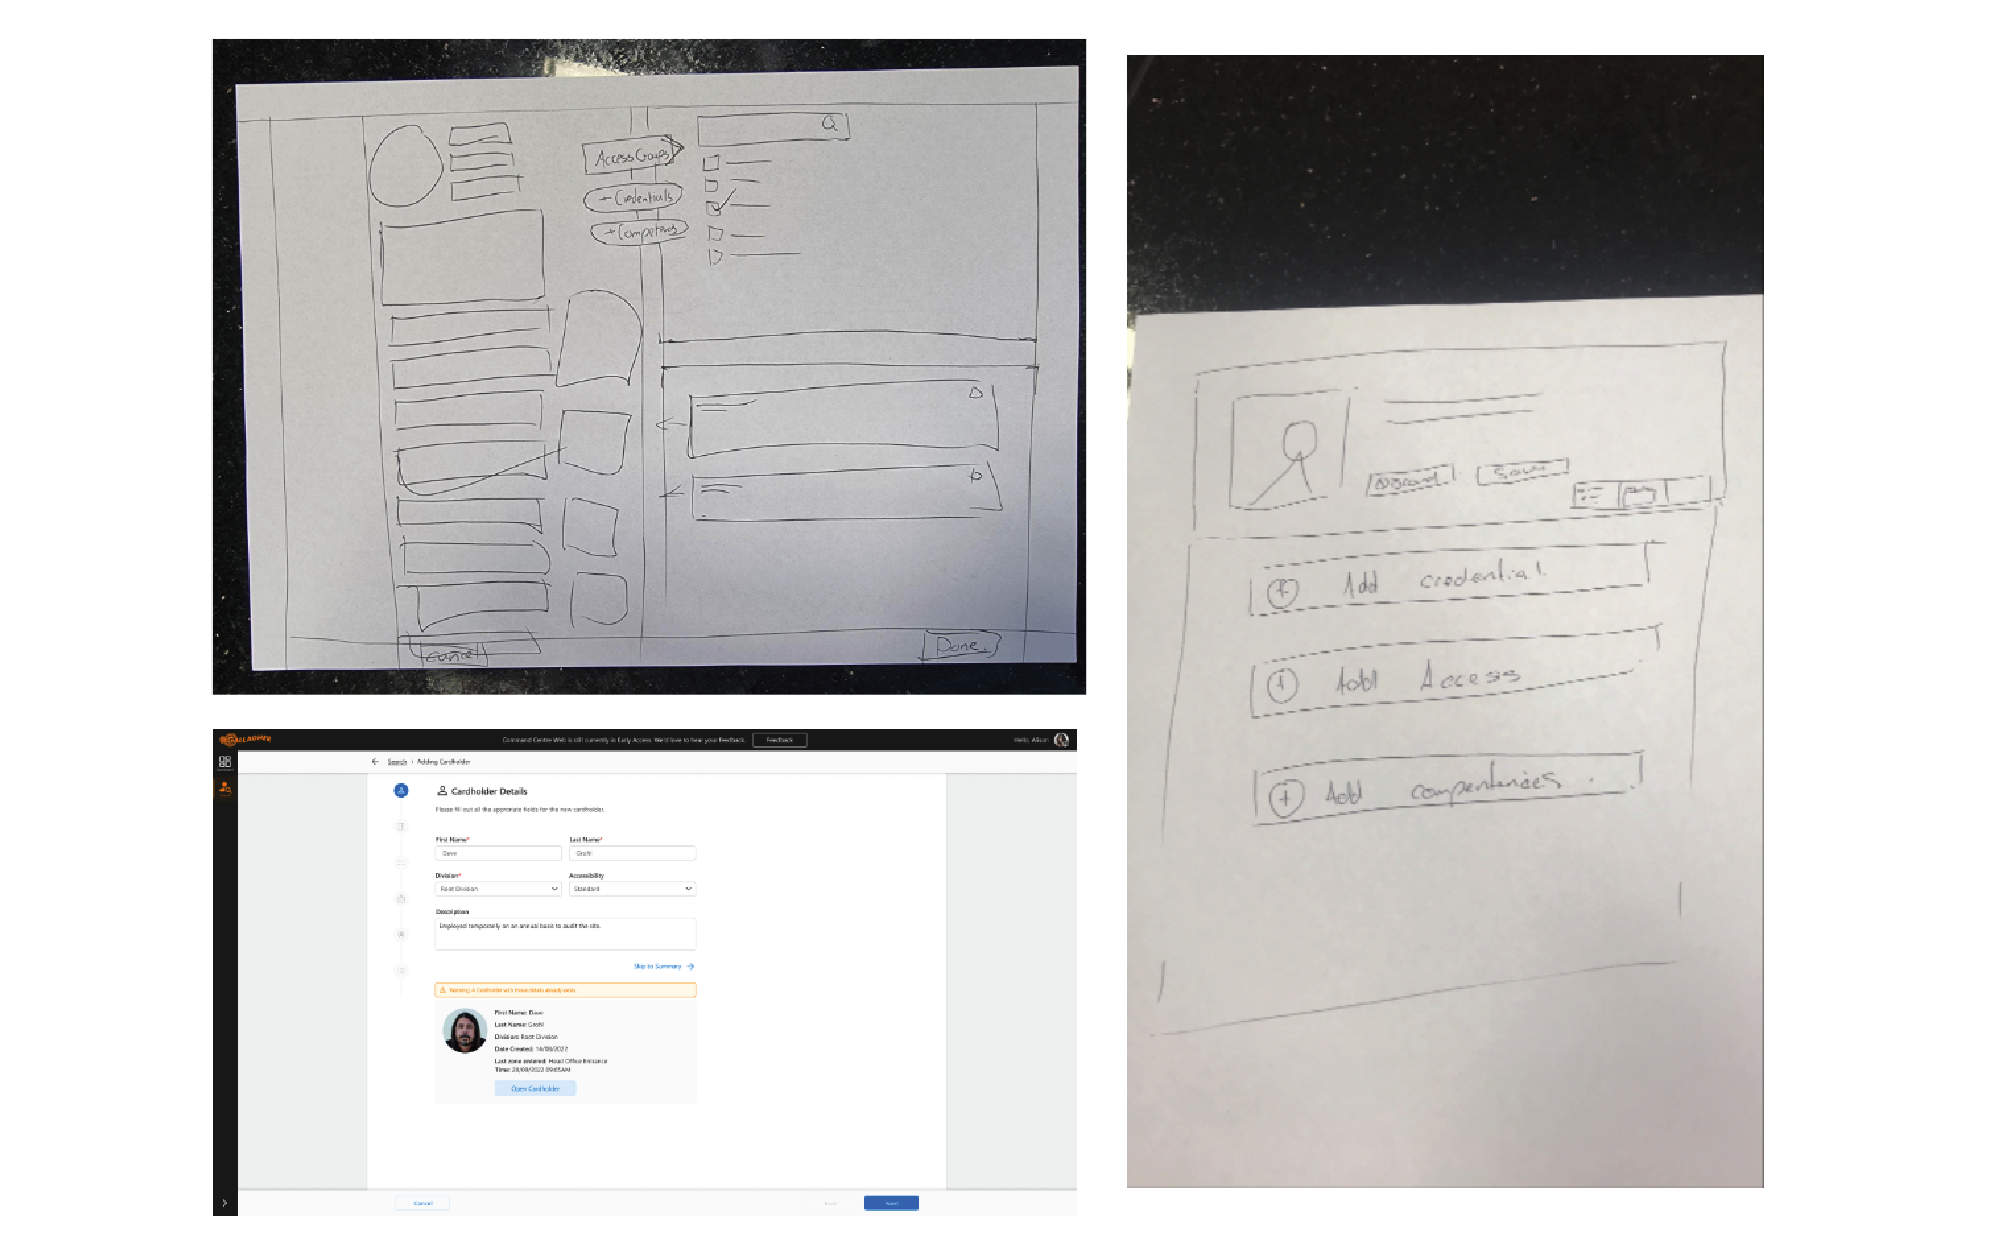 Access Groups
+ Credentials
+ Compétens
Cancel
Done.
GALLAGHER
Command Centre Web is still currently in Early Access. We'd love to hear your feedback.
Feedback
Hello, Alison
Search › Adding Cardholder
Cardholder Details
Please fill out all the appropriate fields for the new cardholder.
First Name*
Last Name*
Dave
Grohl
Division*
Accessibility
Root Division
Standard
Description
Employed temporarily on an annual basis to audit the site.
Skip to Summary
Warning: A Cardholder with those details already exists
First Name: Dave
Last Name: Grohl
Division: Root Division
Date Created: 14/09/2022
Last zone entered: Head Office Entrance
Open Cardholder
Cancel
Next
Discard
Save
+ Add credential
+ Add Access
+ Add compentencies.